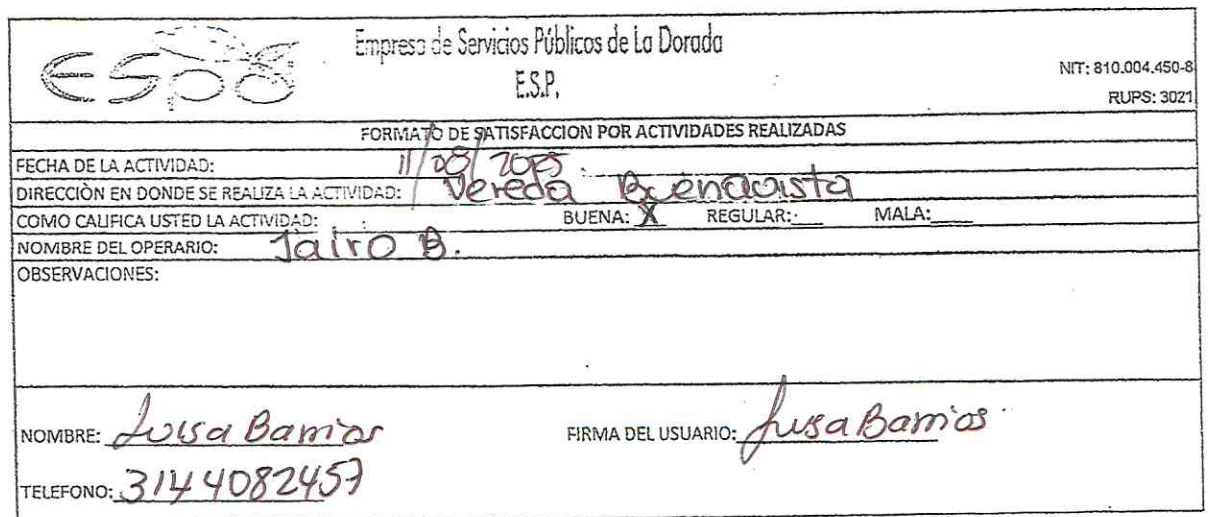 Espd
Empresa de Servicios Públicos de La Dorada
E.S.P.
NIT: 810.004.450-8
RUPS: 3021
FORMATO DE SATISFACCION POR ACTIVIDADES REALIZADAS
FECHA DE LA ACTIVIDAD: 11/08/2025
DIRECCIÒN EN DONDE SE REALIZA LA ACTIVIDAD: Vereda Buenavista
COMO CALIFICA USTED LA ACTIVIDAD: BUENA: X REGULAR: MALA:
NOMBRE DEL OPERARIO: Jairo B.
OBSERVACIONES:
NOMBRE: Luisa Barrios FIRMA DEL USUARIO: Luisa Barrios
TELEFONO: 3144082457